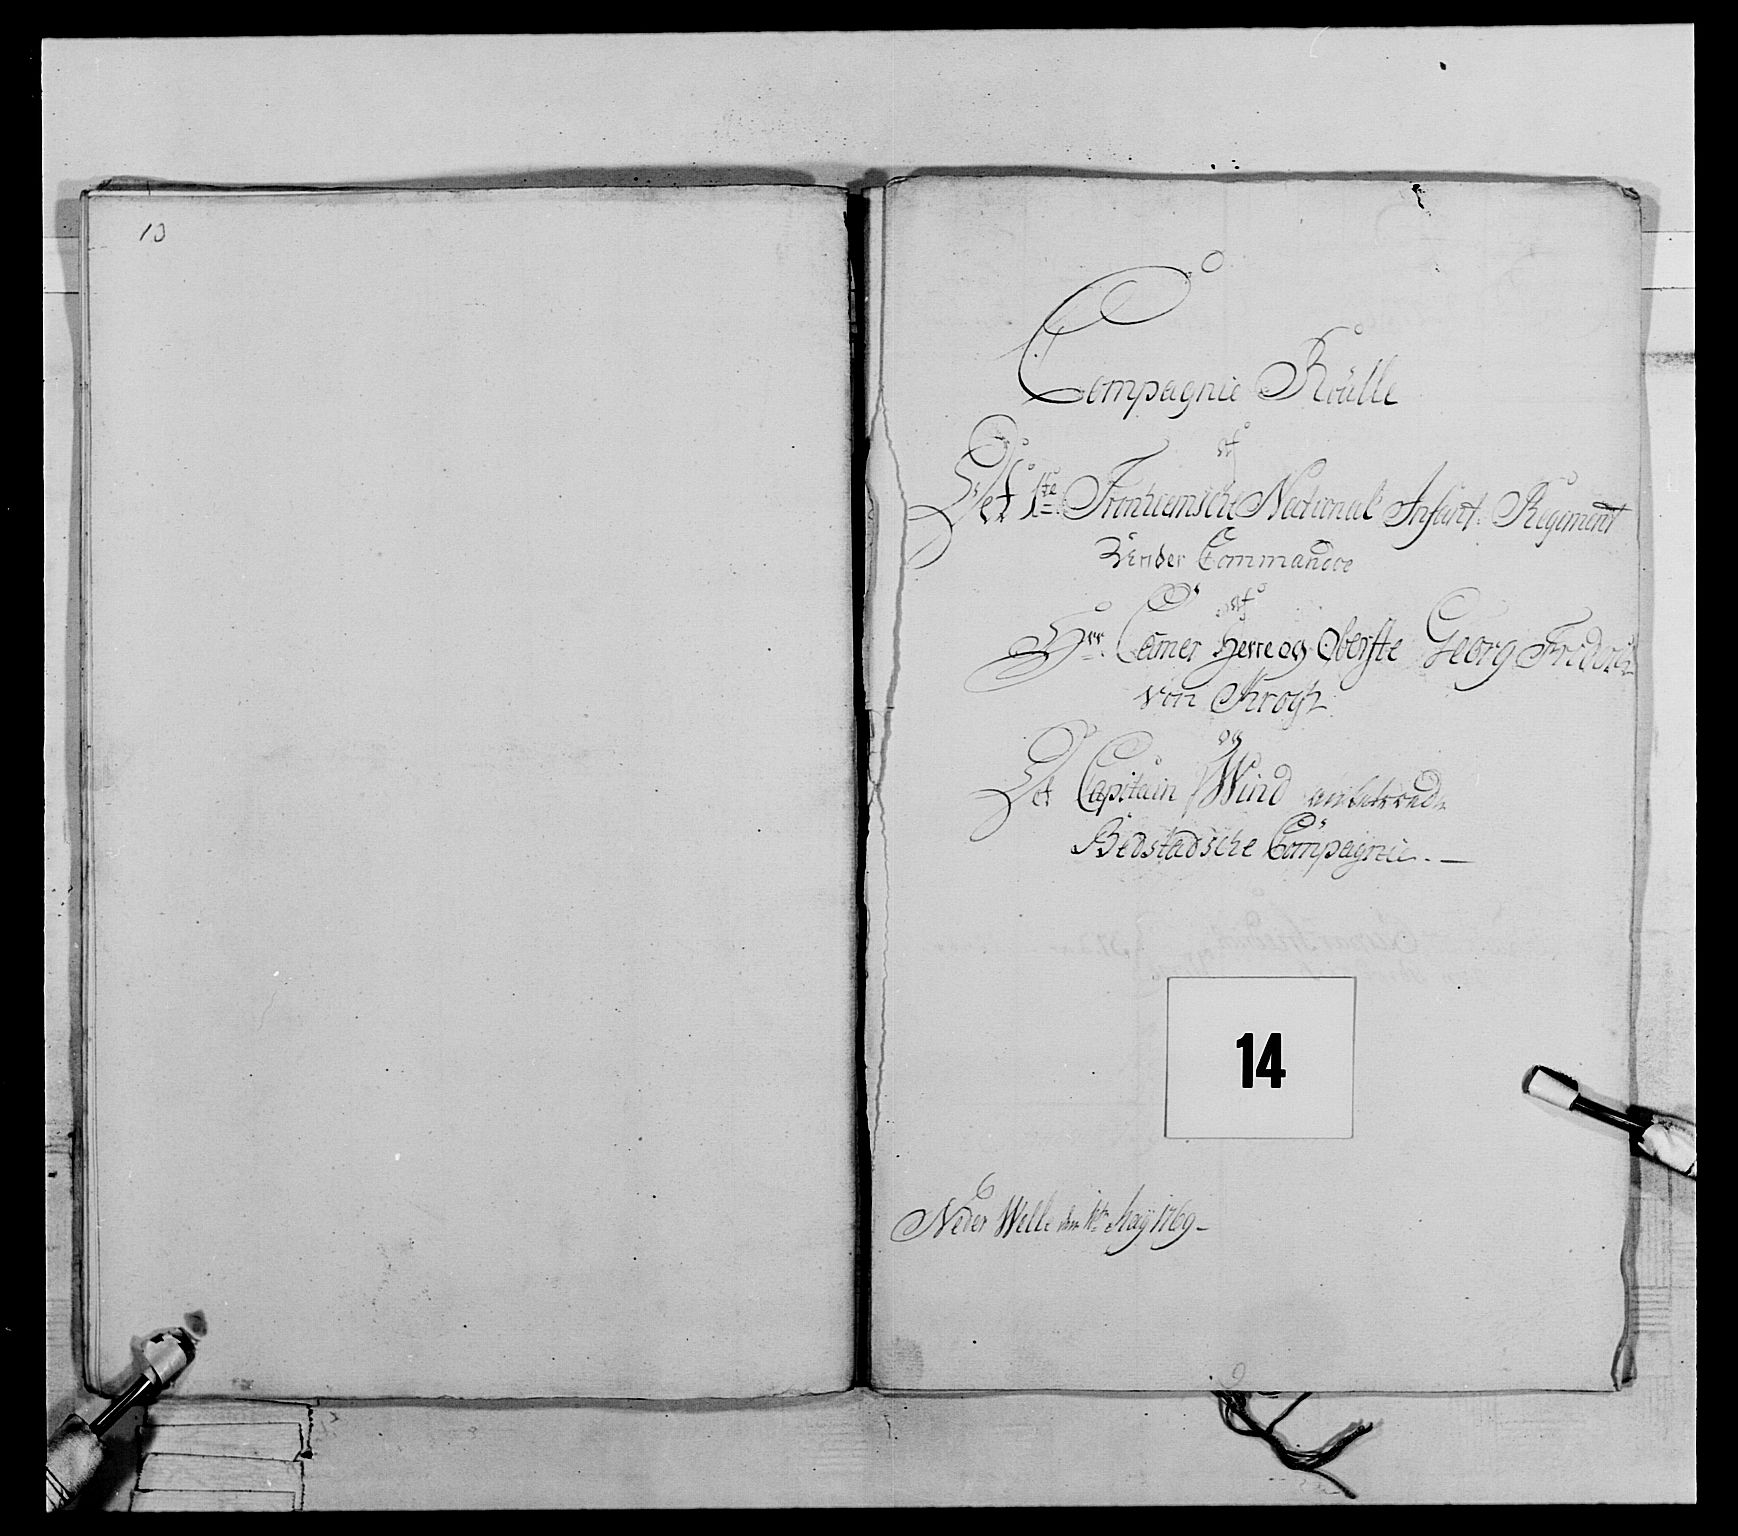 10
Compagnie Rulle
af
Det 1te Tronhiemsche National Infant. Regiment
Under Commandoe
af
Hrr. Camer Herre og Oberste Georg Fridrich
von Krogh
og
Det Capitain Wind anbetroede
Bedstadsche Compagnie. —
14
Neder Welle den 1te May 1769 –